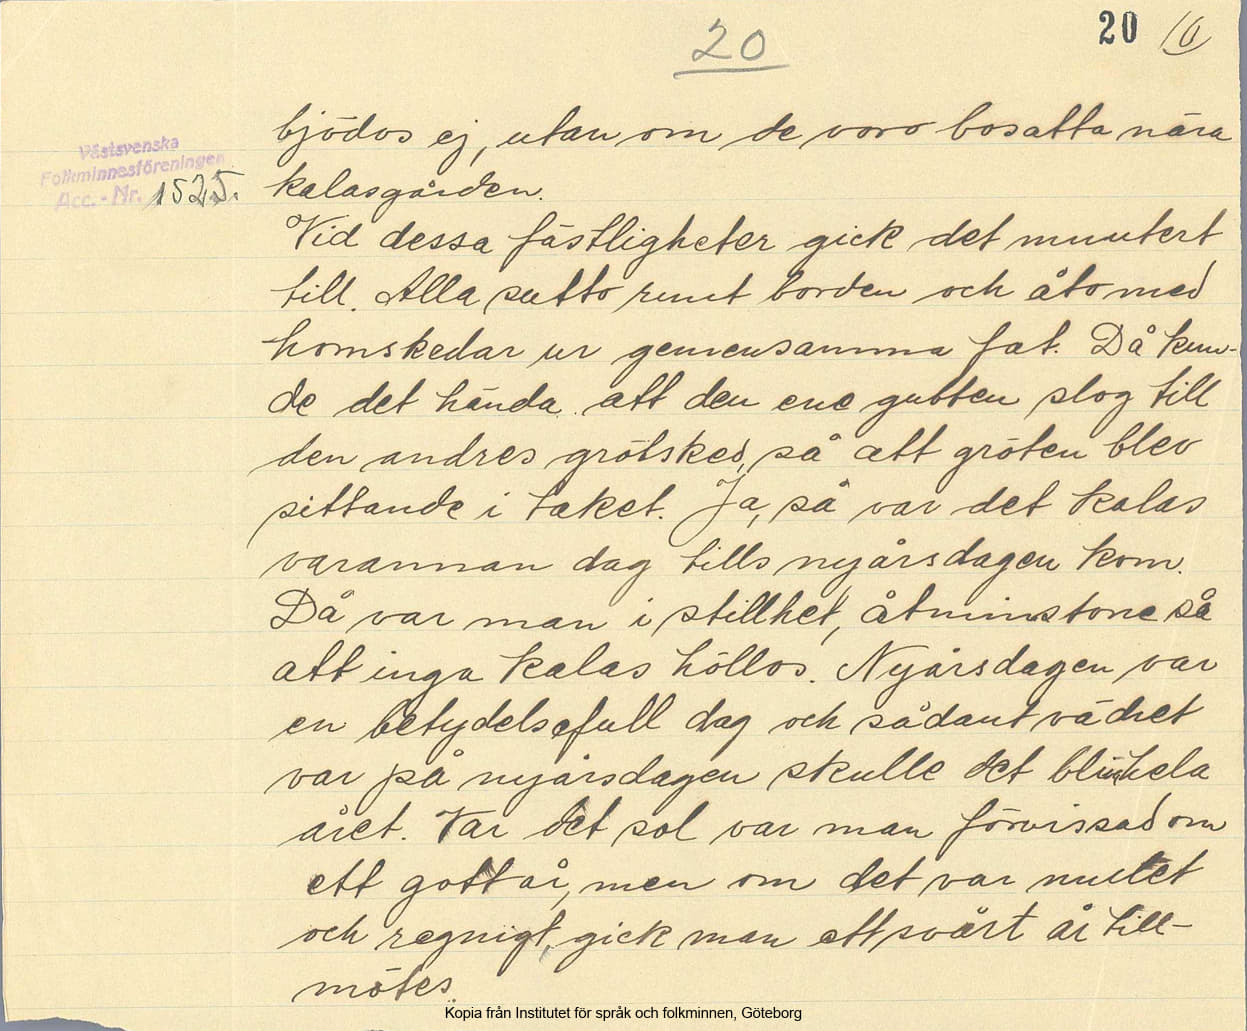 20
20 16
Västsvenska
Folkminnesföreningen
Acc. - Nr. 1525.
bjödos ej, utan om de voro bosatta nära
kalasgården.
Vid dessa fästligheter gick det muntert
till. Alla sutto runt borden och åto med
hornskedar ur gemensamma fat. Då kun-
de det hända att den ene gubben slog till
den andres grötsked, så att gröten blev
sittande i taket. Ja, så var det kalas
varannan dag tills nyårsdagen kom.
Då var man i stillhet, åtminstone så
att inga kalas höllos. Nyårsdagen var
en betydelsefull dag och sådant vädret
var på nyårsdagen skulle det bliva hela
året. Var det sol var man förvissad om
ett gott år, men om det var mulet
och regnigt, gick man ett svårt år till-
mötes.
Kopia från Institutet för språk och folkminnen, Göteborg